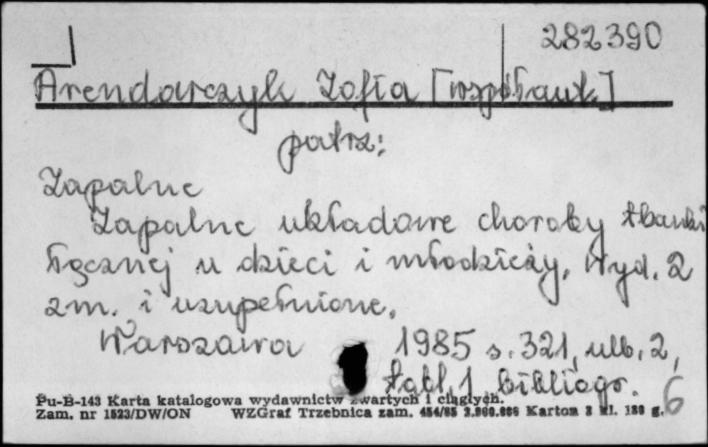 282390
Arendarczyk Zofia [współaut.]
patrz:
Zapalne
Zapalne układowe choroby tkanki
łącznej u dzieci i młodzieży. Wyd. 2
zm. i uzupełnione.
Warszawa 1985 s. 321, ulb. 2,
tabl. 1 bibliogr. 6
Pu-B-143 Karta katalogowa wydawnictw zwartych i ciągłych.
Zam. nr 1523/DW/ON WZGraf Trzebnica zam. Karton 3 kl. 180 g.